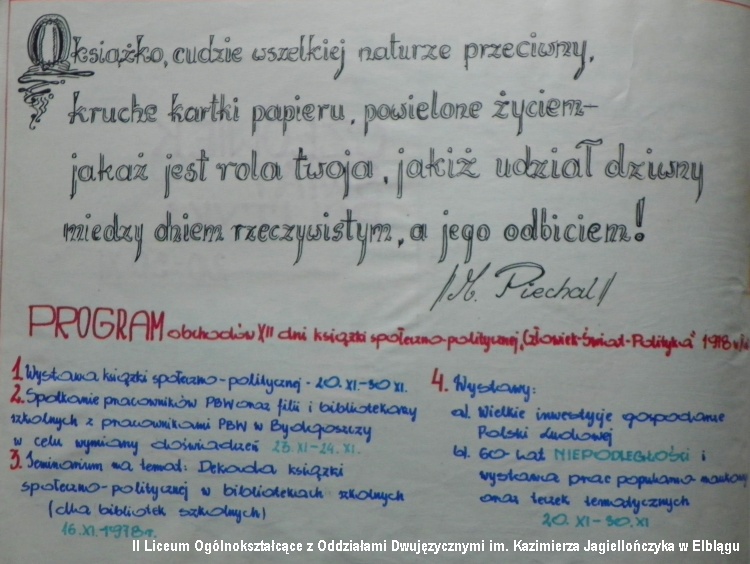 O książko, cudzie wszelkiej naturze przeciwny,
kruche kartki papieru, powielone życiem-
jakaż jest rola twoja, jakiż udział dziwny
miedzy dniem rzeczywistym, a jego odbiciem!
/M. Piechal/
PROGRAM obchodów XII dni książki społeczno-politycznej, "Człowiek-Świat-Polityka" 1978
1. Wystawa książki społeczno-politycznej - 20.XI-30 XI.
2. Spotkanie pracowników PBW oraz filii i bibliotekarzy
szkolnych z pracownikami PBW w Bydgoszczy
w celu wymiany doświadczeń 23.XI-24.XI.
3. Seminarium na temat: Dekada książki
społeczno-politycznej w bibliotekach szkolnych
(dla bibliotek szkolnych)
16.XI.1978r.
4. Wystawy:
a). Wielkie inwestycje gospodarcze
Polski Ludowej
b). 60 lat NIEPODLEGŁOŚCI i
wystawa prac popularno-naukowych
oraz teczek tematycznych
20.XI-30.XI
II Liceum Ogólnokształcące z Oddziałami Dwujęzycznymi im. Kazimierza Jagiellończyka w Elblągu